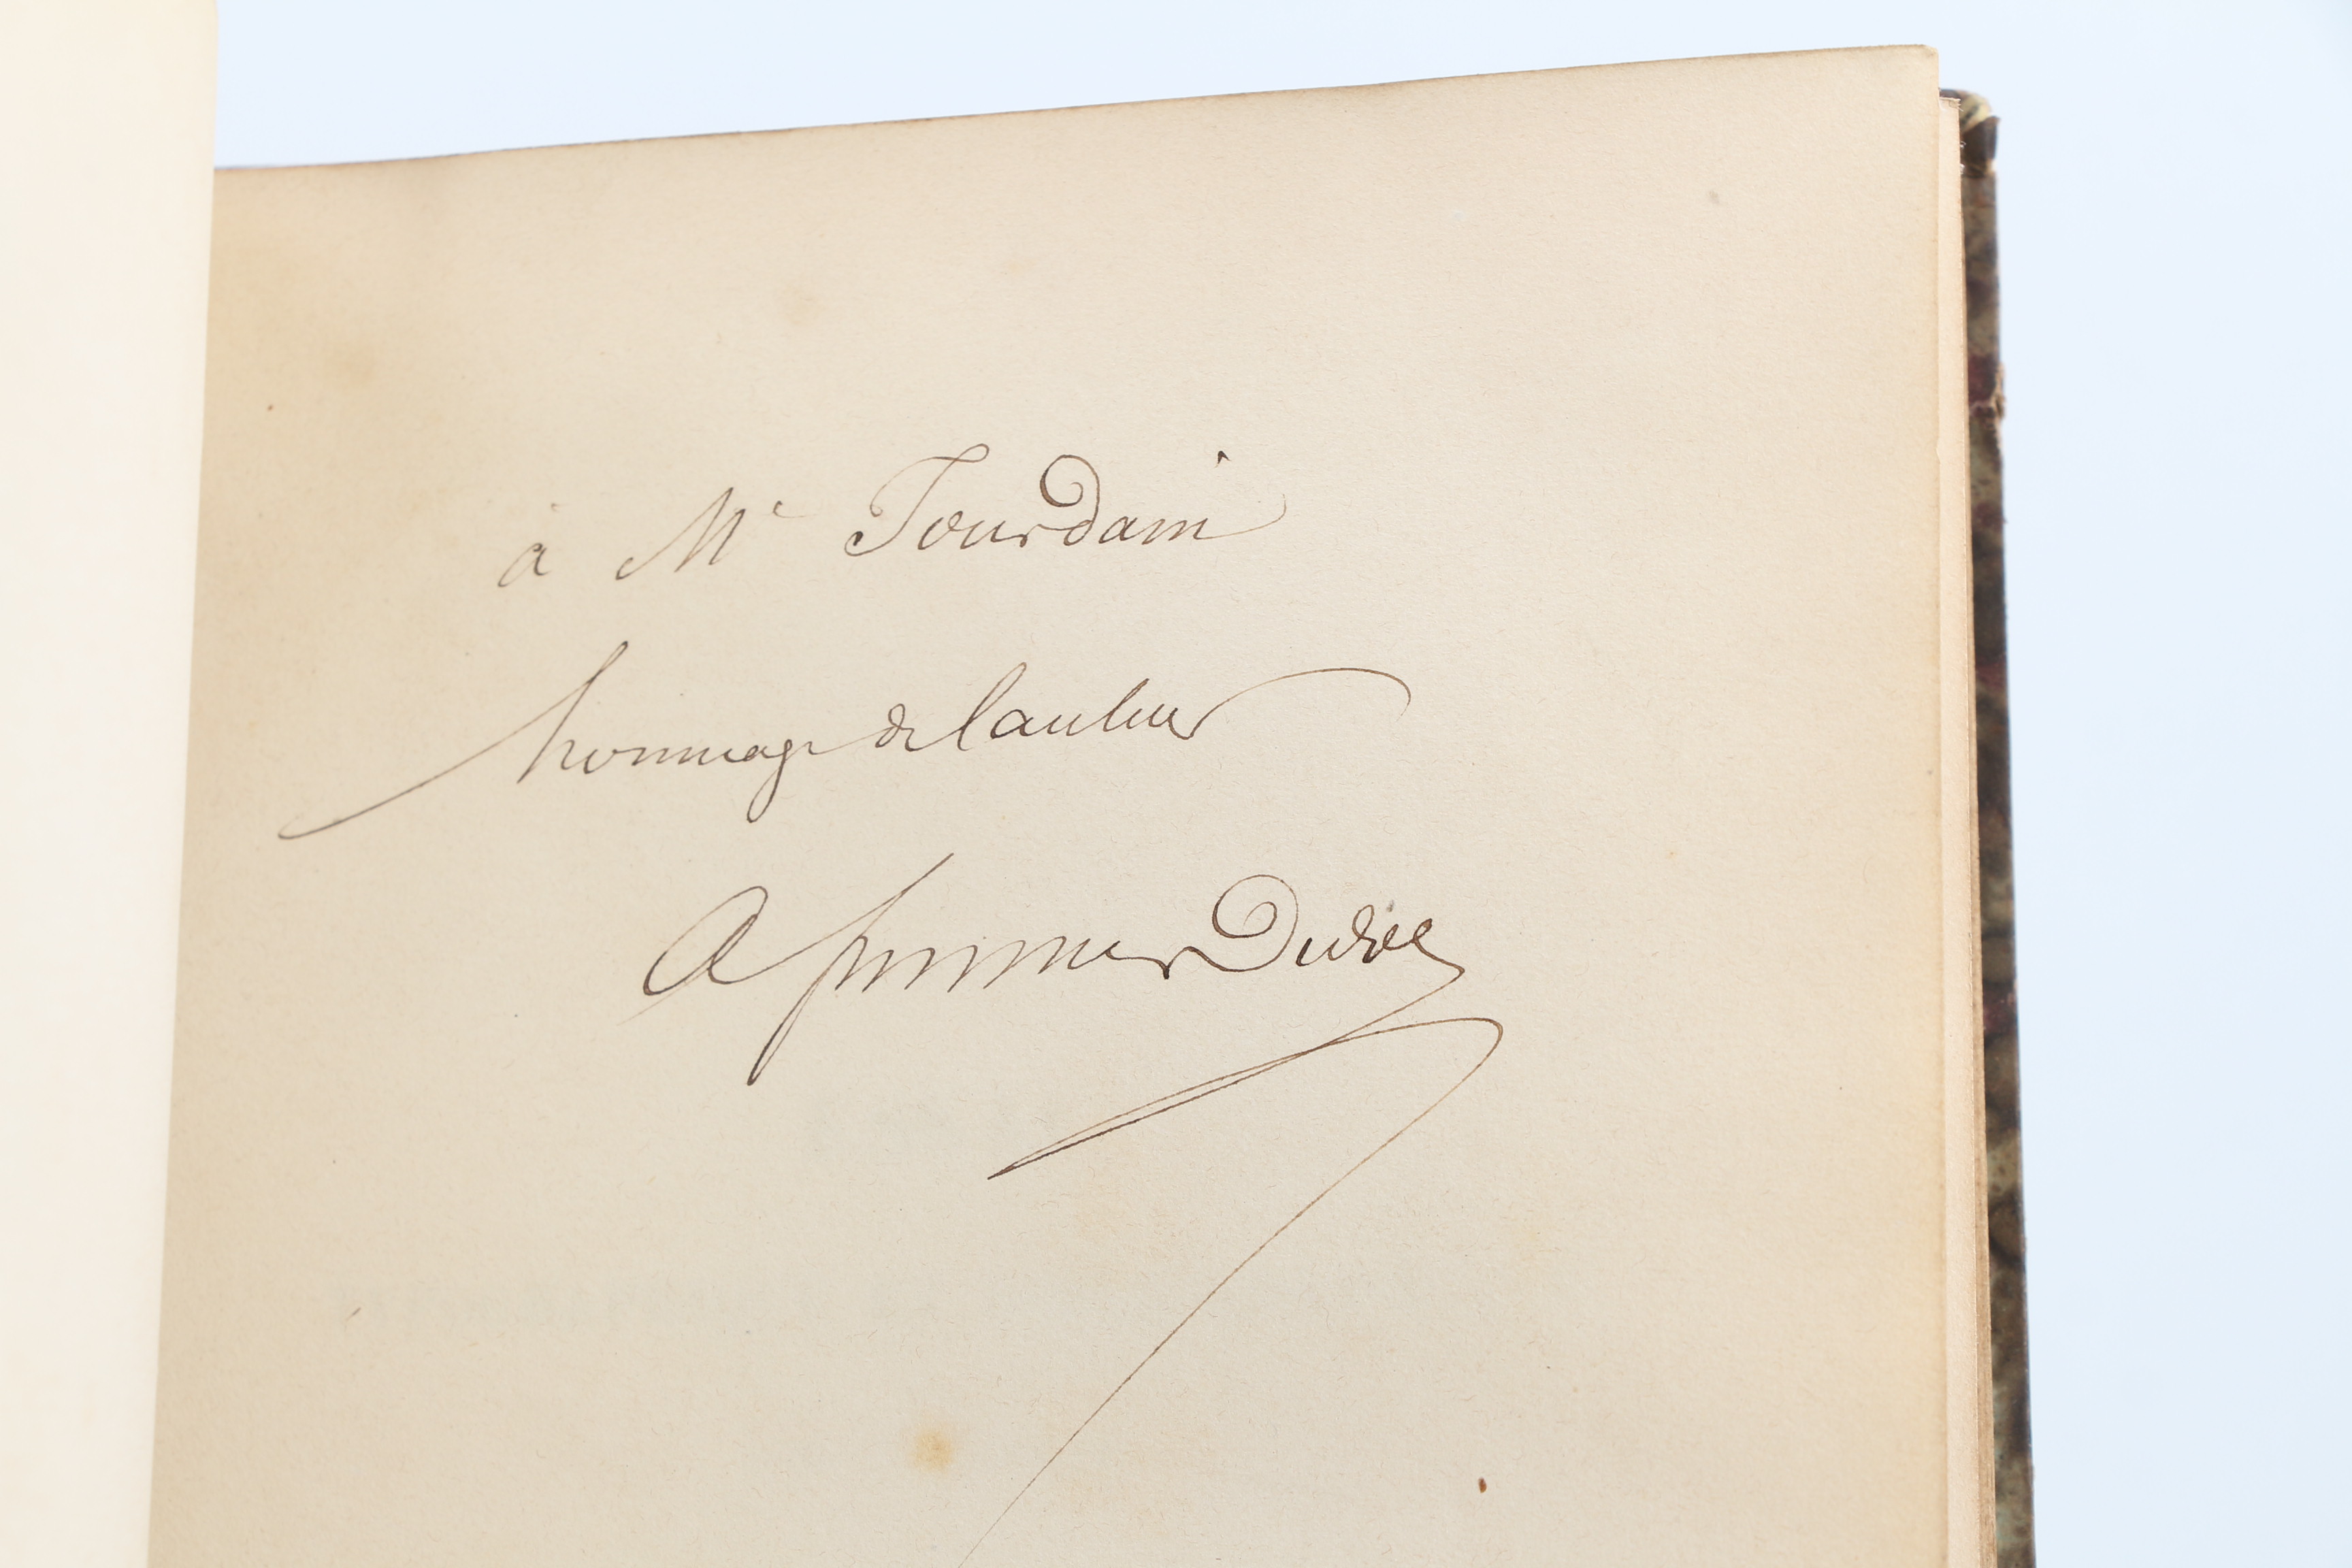 à Mr Jourdain
hommage de lauteur
A firmin Didot